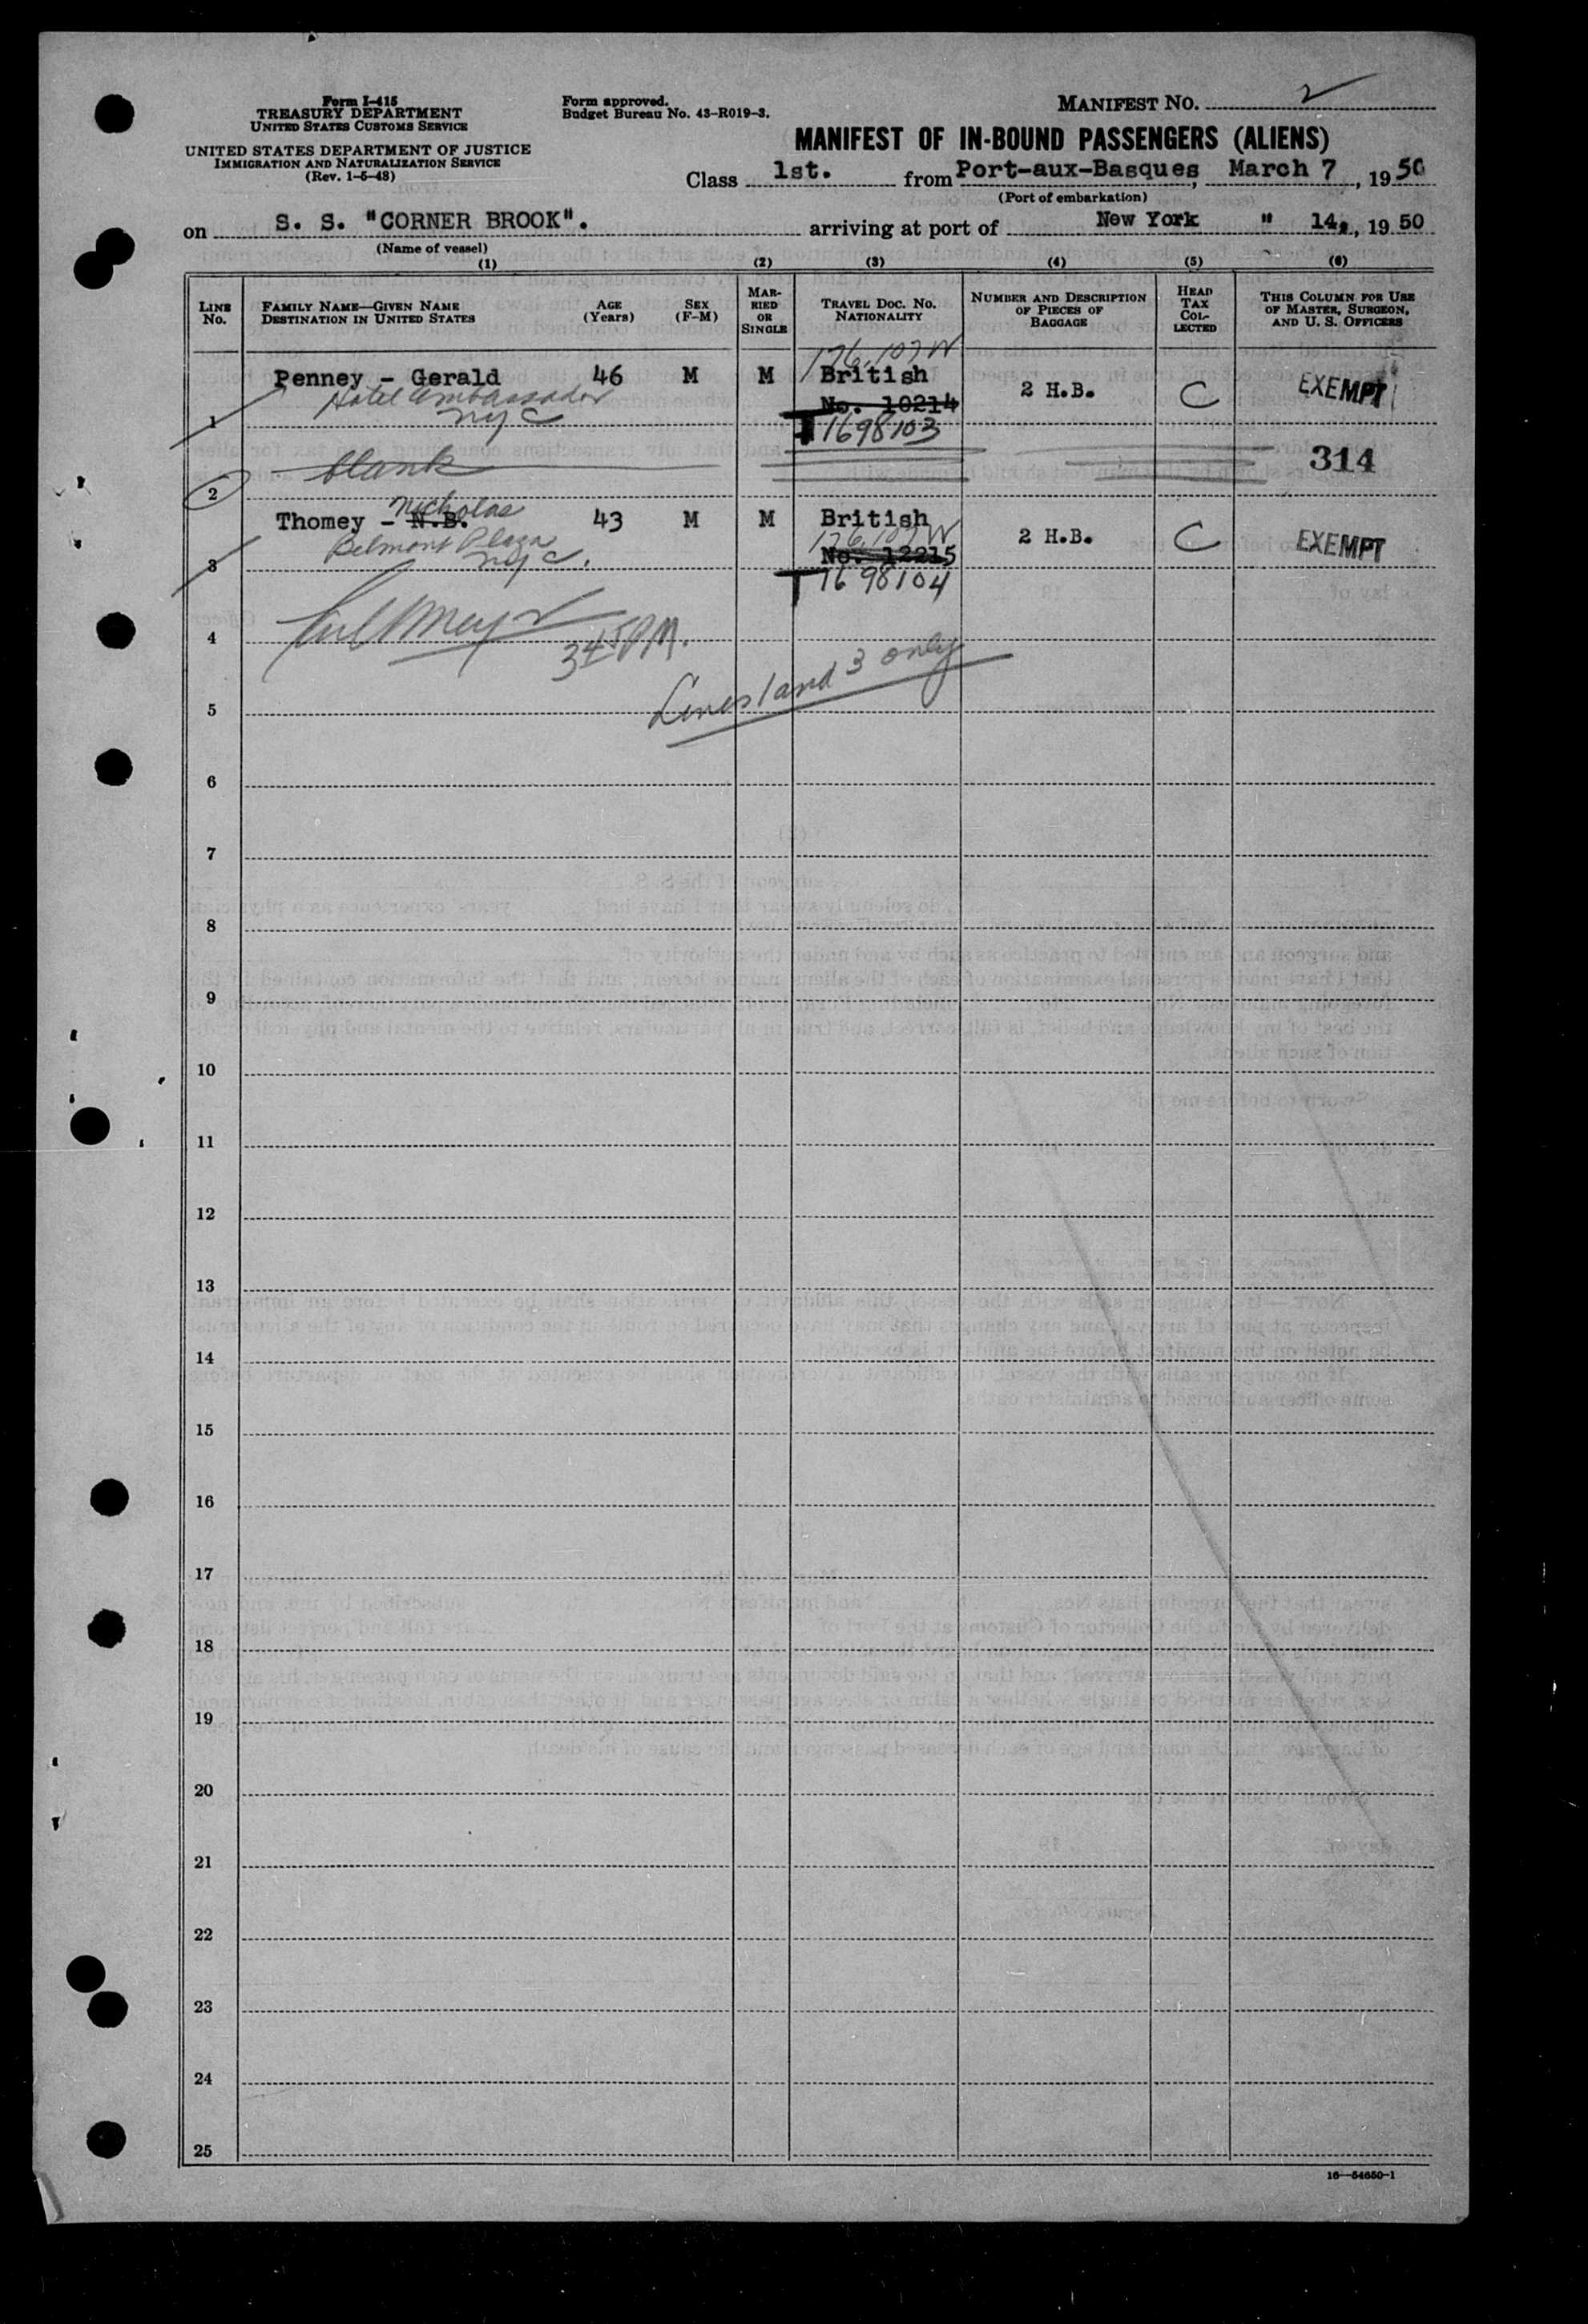 Form I-415
TREASURY DEPARTMENT
UNITED STATES CUSTOMS SERVICE
UNITED STATES DEPARTMENT OF JUSTICE
IMMIGRATION AND NATURALIZATION SERVICE
(Rev. 1-5-48)
Form approved.
Budget Bureau No. 43-R019-3.
MANIFEST NO. 2
MANIFEST OF IN-BOUND PASSENGERS (ALIENS)
Class 1st. from Port-aux-Basques, March 7, 1950
(Port of embarkation)
on S. S. "CORNER BROOK". arriving at port of New York " 14, 1950
(Name of vessel)
(1) (2) (3) (4) (5) (6)
LINE No. FAMILY NAME—GIVEN NAME DESTINATION IN UNITED STATES AGE (Years) SEX (F-M) MARRIED OR SINGLE TRAVEL DOC. NO. NATIONALITY NUMBER AND DESCRIPTION OF PIECES OF BAGGAGE HEAD TAX COLLECTED THIS COLUMN FOR USE OF MASTER, SURGEON, AND U. S. OFFICERS
176,107W
Penney - Gerald 46 M M British 2 H.B. C EXEMPT
Hotel Ambassador No. 10214
1 NYC T1698103
blank 314
2
Nicholas
Thomey - N.B. 43 M M British 2 H.B. C EXEMPT
Belmont Plaza 176,107W
NYC. No. 12215
3 T1698104
4 3 45 PM.
Lines 1 and 3 only
5
6
7
8
9
10
11
12
13
14
15
16
17
18
19
20
21
22
23
24
25
16—54650-1